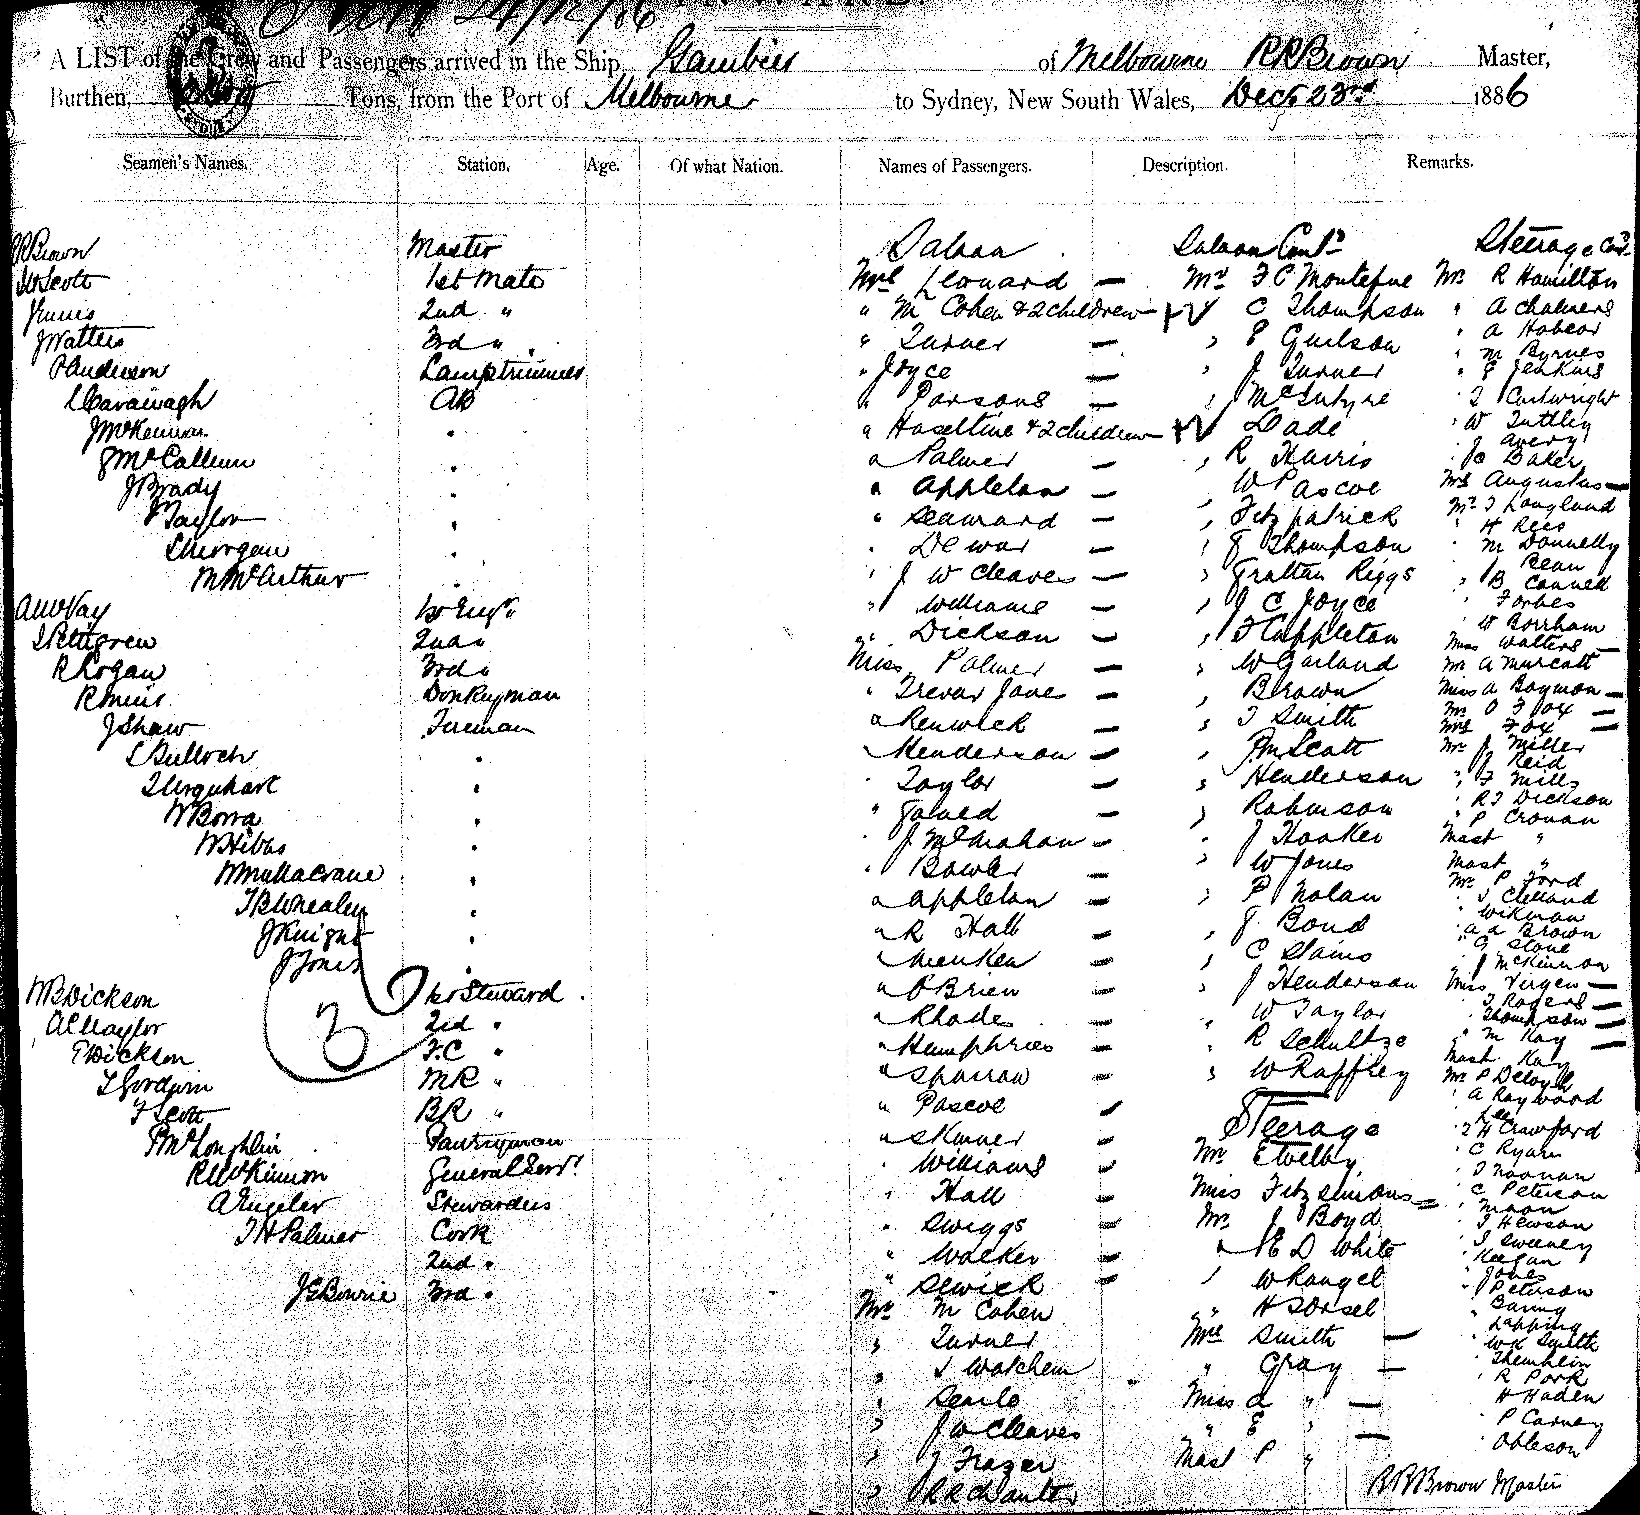 24/12/86
A LIST of the Crew and Passengers arrived in the Ship Gambier of Melbourne R R Brown Master,
Burthen, Tons, from the Port of Melbourne to Sydney, New South Wales, Decr 23rd 1886
Seamen's Names. Station. Age. Of what Nation. Names of Passengers. Description. Remarks.
R R Brown Master
W Scott 1st Mate
J Innis 2nd "
J Watters 3rd "
P Anderson Lamptrimmer
L Cavanagh AB
J McKinnon "
J McCallum "
J Brady "
J Taylor "
S Morgan "
M McArthur "
A W Vay 1st Engr
J Pettigrew 2nd "
R Logan 3rd "
R Innis Donkeyman
J Shaw Fireman
L Bulloch "
J Urquhart "
W Borra "
W Hibbs "
W Mullacrane "
T B Whealey "
J Knight "
J Jones "
W B Dickson 1st Steward
A C Naylor 2nd "
T Dickson F.C "
L Gordyin MR "
F Scott BR "
P McLoughlin Pantryman
R McKinnon General Servt
A Engeler Stewardess
T H Palmer Cook
2nd "
J G Bowrie 3rd "
3
Saloon
Mrs Leonard —
" M Cohen & 2 children —
" Turner —
" Joyce —
" Parsons —
" Haseltine & 2 children —
" Palmer —
" Appleton —
" Seaward —
" Dewar —
" J W Cleaves —
" Williams —
" Dickson —
Miss Palmer —
" Trevor Jane —
" Renwick —
" Henderson —
" Taylor —
" Joined —
" J McMahon —
" Bowler —
" Appleton —
" R Hall —
" Menken —
" O'Brien —
" Rhodes —
" Humphries —
" Sparrow —
" Pascoe —
" Skinner —
" Williams —
" Hall —
" Swiggs —
" Walker —
" Selwick —
Mr M Cohen
" Turner
" S Watchem
" Searle
" J W Cleaves
" J Frazer
" R R Chanter
Saloon Cont'd
Mr F C Montefine
" C Thompson
" E Guilson
" J Turner
" McIntyre
" Dade
" R Harris
" W Pascoe
" Fitzpatrick
" J Thompson
" Grattan Riggs
" J C Joyce
" F Appleton
" W Garland
" Brown
" T Smith
" J M Scott
" Henderson
" Robinson
" J Hooker
" W Jones
" P Nolan
" J Bond
" C Stains
" J Henderson
" W Taylor
" R Schultze
" W Rappley
Steerage
Mr Etwelby
Miss Fitzsimons —
Mr J Boyd
" E D White
" W Rangel
" H Sorsel
Mrs Smith —
" Gray —
Miss A " —
" E " —
Mast P "
Steerage Cont'd
Mr R Hamilton
" A Chalmers
" A Habear
" M Byrnes
" J Jenkins
" J Cartwright
" W Tuttley
" J Avery
" J Baker
Mrs Augustus —
Mr J Langland
" H Rees
" M Donnelly
" Bean
" B Connell
" Forbes
" W Borrham
Miss Walters —
Mr A Murcott
Miss A Boymon —
Mr O Fox —
Mrs Fox —
Mr J Miller
" J Reid
" F Mills
" R J Dickson
" P Cronan
Mast "
Mast "
Mr P Ford
" J Clelland
" Wikman
" A A Brown
" G Stone
" J McKinnon
Miss Virgen —
" J Rogers —
" Thompson —
" M Kay —
Mast Kay
Mr P Deloyle
" A Raywood
" Lee
" J H Crawford
" C Ryan
" J Noonan
" C Peterson
" Moon
" J Hewson
" J Sweeney
" Keegan
" Jones
" J Peterson
" Barry
" Lapping
" W K Smith
" Themhein
" R Pork
" H Haden
" P Carney
" Obleson
R R Brown Master